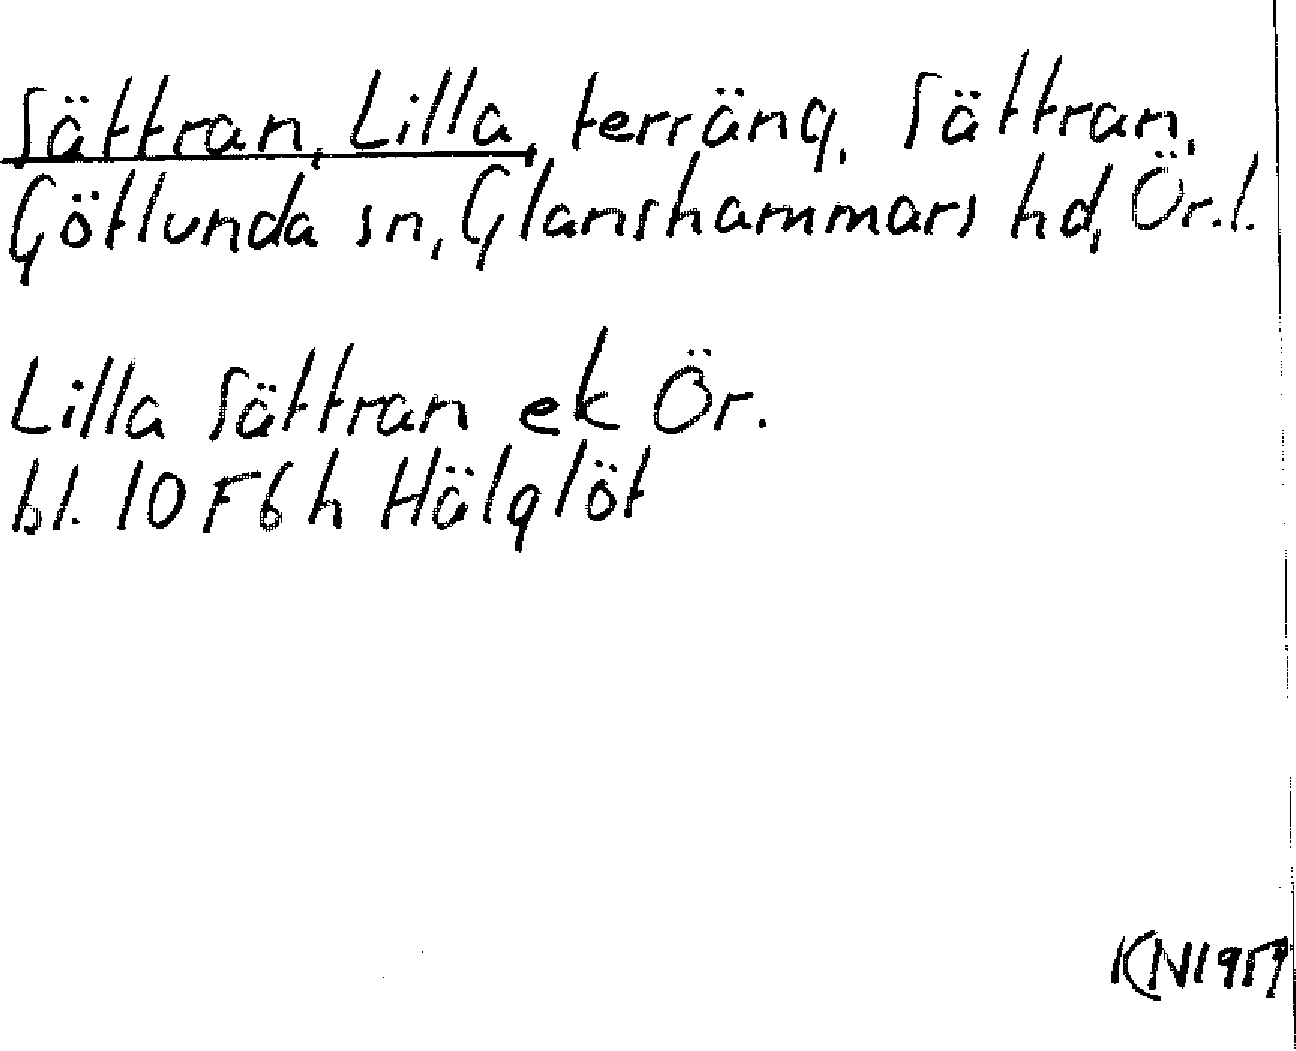 Sättran, Lilla, terräng, Sättran,
Götlunda sn, Glanshammars hd, Ör.l.
Lilla Sättran ek Ör.
bl. 10 F 6 h Hälglöt